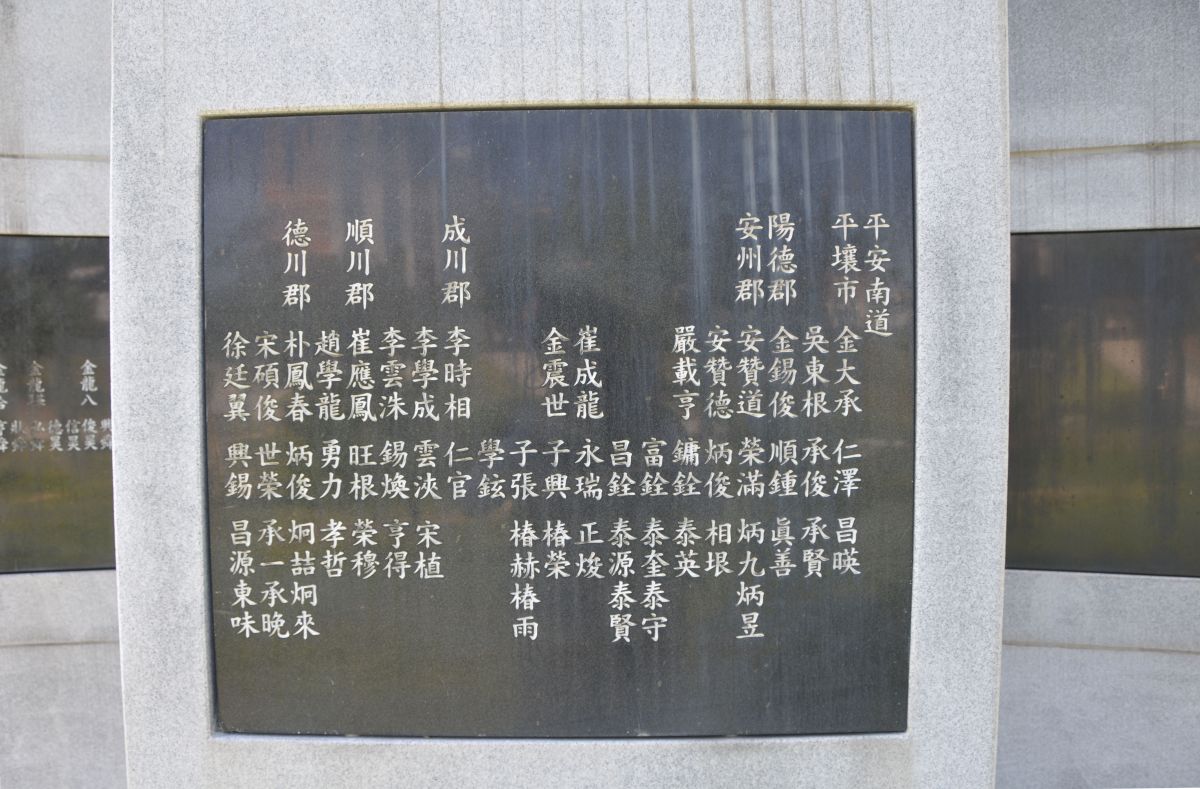 平安南道
平壤市 金大承 仁澤 昌暎
吳東根 承俊 承賢
陽德郡 金錫俊 順鍾 眞善
安州郡 安贊道 榮滿 炳九 炳昱
安贊德 炳俊 相垠
嚴載亨 鏞銓 泰英
富銓 泰奎 泰守
昌銓 泰源 泰賢
崔成龍 永瑞 正焌
金震世 子興 椿榮
子張 椿赫 椿雨
學鉉
成川郡 李時相 仁官
李學成 雲浹 宋植
李雲洙 錫煥 亨得
順川郡 崔應鳳 旺根 榮穆
趙學龍 勇力 孝哲
德川郡 朴鳳春 炳俊 炯喆 炯來
宋碩俊 世榮 承一 承晚
徐廷翼 興錫 昌源 東味
金龍八 俊昊
信昊
德昊